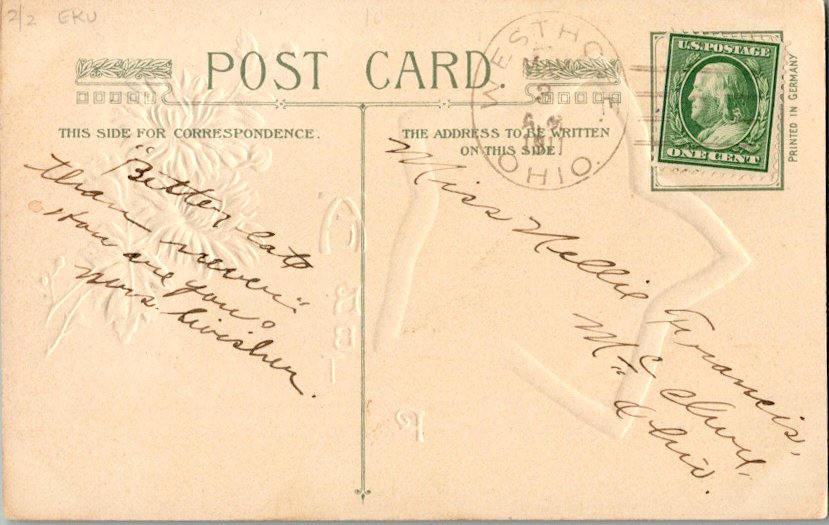 2/2 EKU
POST CARD
THIS SIDE FOR CORRESPONDENCE.
THE ADDRESS TO BE WRITTEN
ON THIS SIDE
U.S. POSTAGE
ONE CENT
PRINTED IN GERMANY
WESTHO
3
OHIO.
"Better late
than never"
How are you?
Mrs.
Miss Nellie Francis,
Mc Clure,
Ohio.